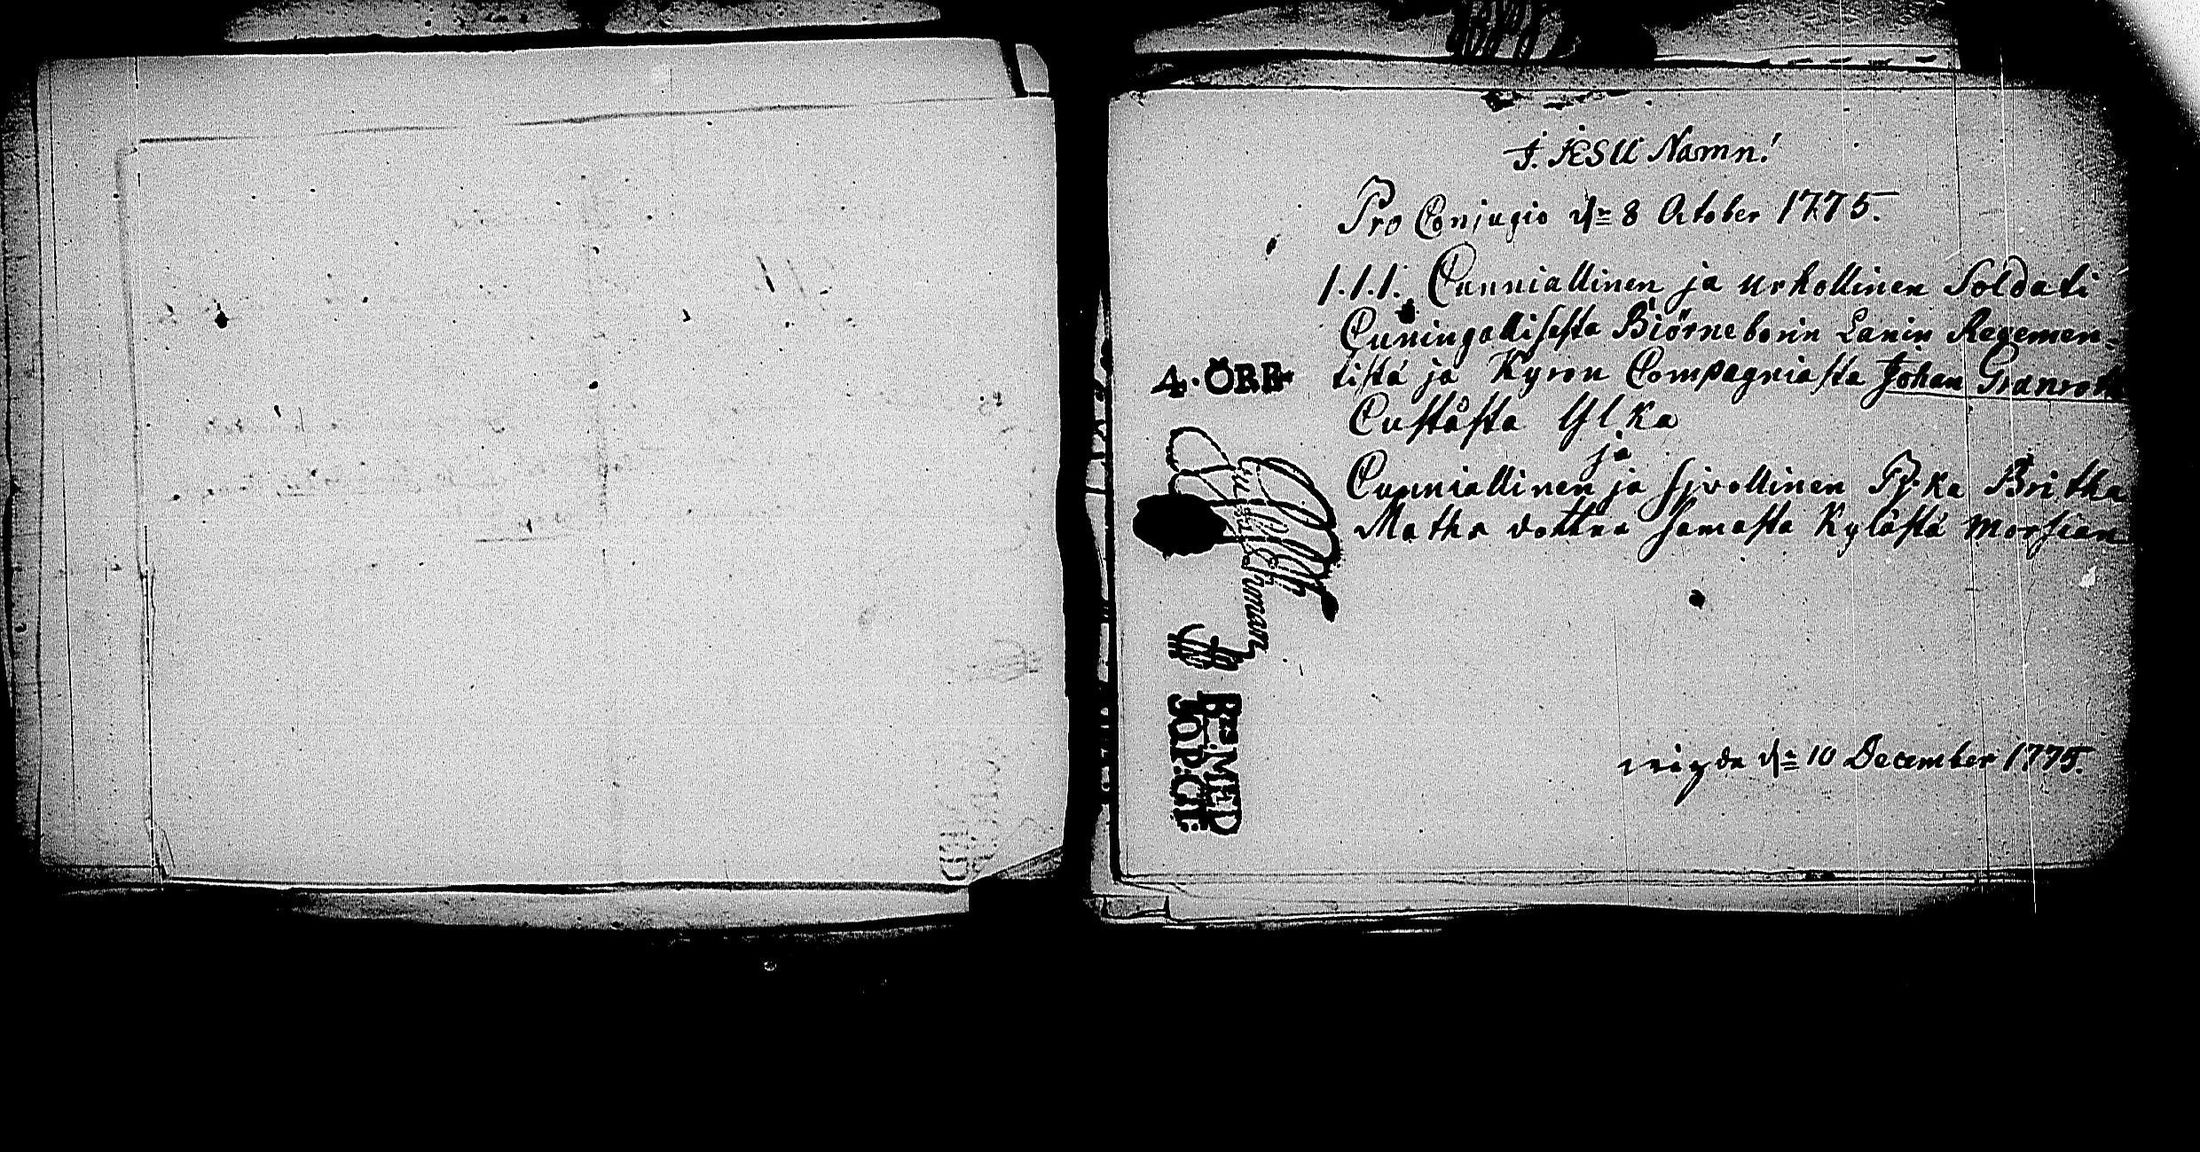 J. JESU Namn!
Pro Conjugio d. 8 October 1775.
1.1.1. Cunniallinen ja urhollinen Soldati
Cuningallisesta Biörneborin Länin Regemen-
tistä ja Kyron Compagniasta Johan Granroth
4. ÖRE
Ylka
ja
Cunniallinen ja sivollinen Pj:ka Britha
Maths dotter samasta Kylästä Morsian
wigde d. 10 December 1775.